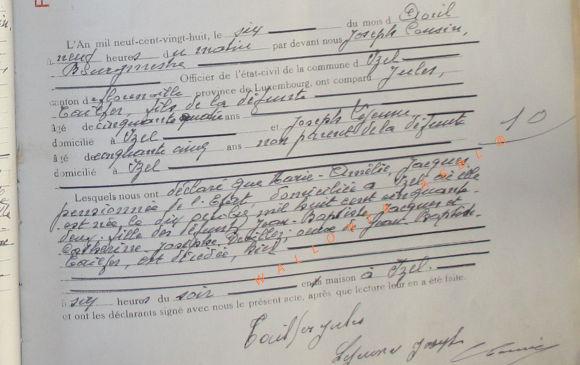 L'An mil neuf-cent-vingt-huit, le six du mois d'Avril
à neuf heures du matin par devant nous Joseph Cousin,
Bourgmestre Officier de l'état-civil de la commune d'Izel
canton de Florenville province de Luxembourg, ont comparu Jules,
fils de la défunte
âgé de cinquante quatre ans
domicilié à Izel et Joseph Lejeune
âgé de cinquante cinq ans non parent de la défunte
domicilié à Izel
10
Lesquels nous ont déclaré que Marie-Amélie, Jacques
pensionnée de l'Etat, domiciliée à Izel où elle
est née le dix octobre mil huit cent cinquante
deux, fille des défunts Jean-Baptiste Jacques et
Catherine-Josèphe veuve de Jean-Baptiste
est décédée, hier
à six heures du soir en sa maison à Izel.
et ont les déclarants signé avec nous le présent acte, après que lecture leur en a été faite.
Jules
Lejeune Joseph
WALLONIE